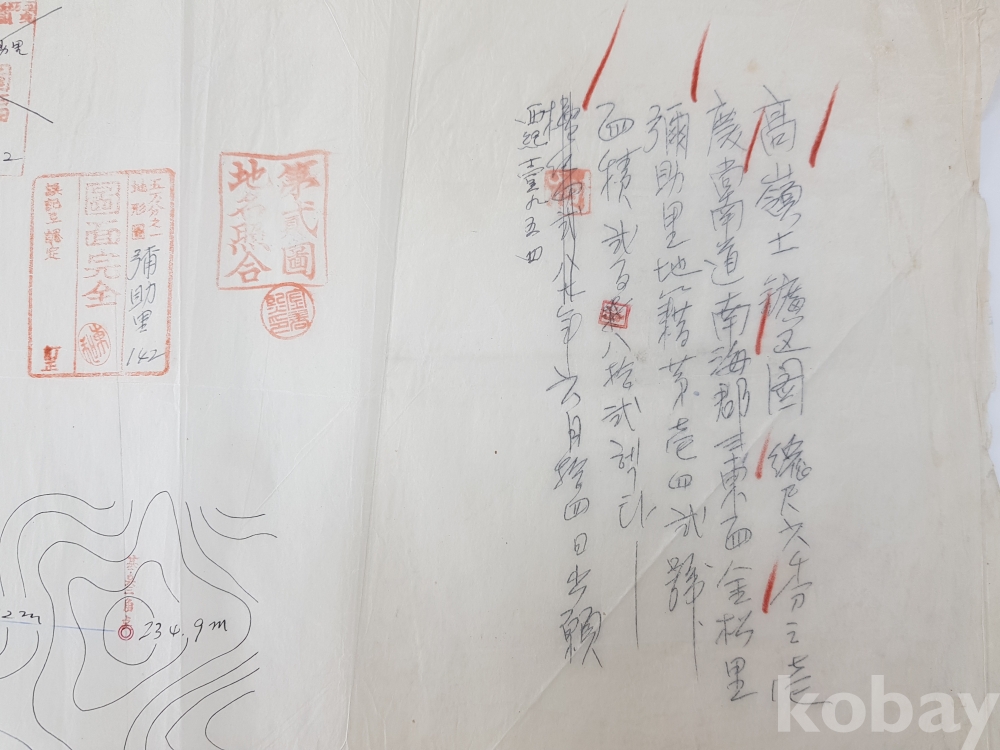 高嶺土鑛区図 縮尺六千分之壱
慶尚南道南海郡三東面金松里
彌助里地籍第壱四弐號
面積弐百八拾弐헥타
檀紀四弐八七年六月拾四日出願
西紀壹九五四
第貳圖
地名照合
五万分之一
地形圖
彌助里 142
圖面完全
誤記互換定
訂正
234.9m
2m
kobay